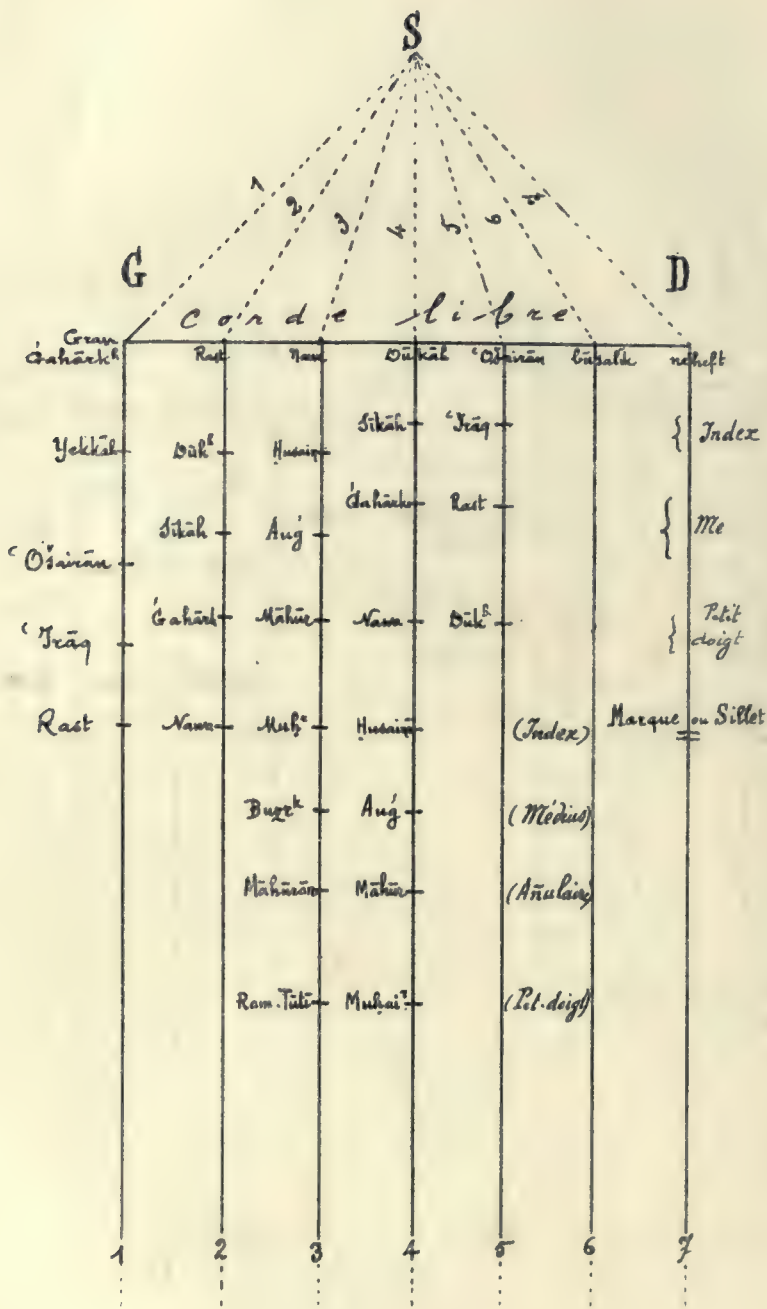 S
1 2 3 4 5 6 7
G D
Corde libre
Gran
Ǵahārkʰ Rast Naw Dūkāh ʿOšairān būsalik neheft
Sīkāh ʿIrāq { Index
Yekkāh Dūkʰ Ḥusain
Ǵahārk Rast { Me
Sīkāh Auǵ
ʿOšairān
Ǵahārk Māhūr Nawa Dūkʰ { Petit
doigt
ʿIrāq
Rast Nawa Muḥʳ Ḥusainī (Index) Marque ou Sillet
Buzrᵏ Auǵ (Médius)
Māhūrān Māhūr (Añulaire)
Ram-Tūtī Muḥaiʳ (Pet-doigt)
1 2 3 4 5 6 7